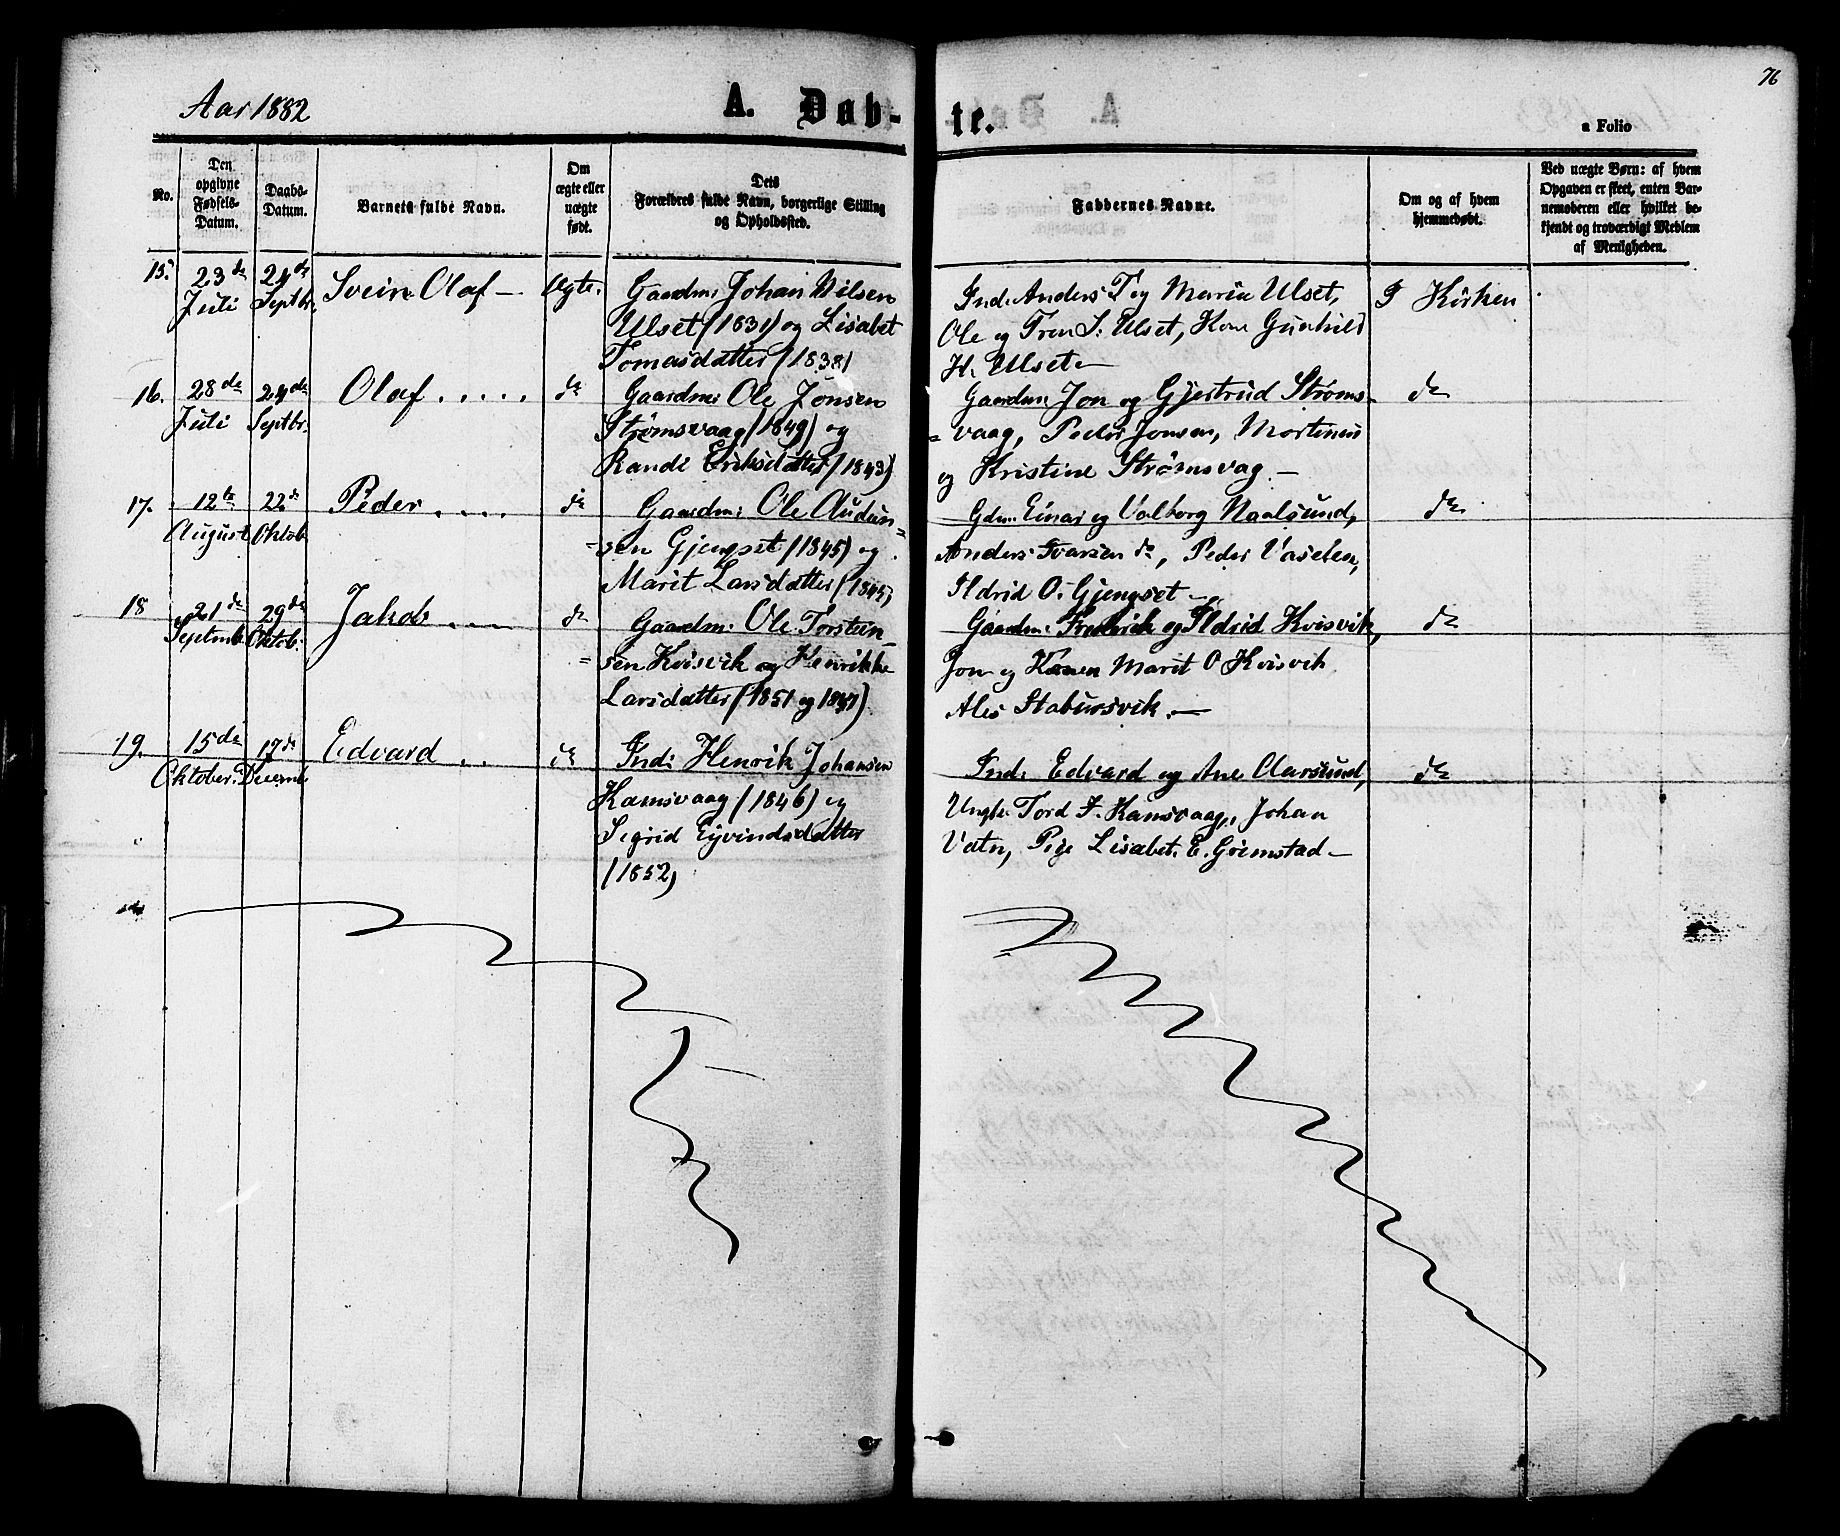 76
Aar 1882
A. Døb-
te.
a Folio
No.
Den opgivne Fødsels-Datum.
Daabs-Datum.
Barnets fulde Navn.
Om ægte eller uægte født.
Dets Forældres fulde Navn, borgerlige Stilling og Opholdssted.
Faddernes Navne.
Om og af hvem hjemmedøbt.
Ved uægte Børn: af hvem Opgaven er skeet, enten Barnemoderen eller hvilket bekjendt og troværdigt Medlem af Menigheden.
15.
23de Juli
24de Septbr.
Svein Olaf —
Ægte.
Gaardm: Johan Nilsen
Ulset (1831) og Lisabet
Tomasdatter (1838)
Ind: Anders T og Maria Ulset,
Ole og Fru S. Ulset, Kone Gunhild
H. Ulset —
I Kirken
16.
28de Juli
24de Septbr.
Olaf . . . . .
do
Gaardm: Ole Jonsen
Strømsvaag (1849) og
Randi Eriksdatter (1843)
Gaardm: Jon og Gjertrud Strøms-
= vaag, Peder Jonsen, Martinus
og Kristine Strømsvag. —
do
17.
12te August
22de Oktob
Peder . . . .
do
Gaardm: Ole Audun=
-sen Gjengset (1845) og
Marit Larsdatter (1845)
Gdm: Einar og Valborg Naalsund,
Anders Ivarsen do, Peder Vaselen,
Ildrid O. Gjengset —
do
18
21de Septemb.
29de Oktob.
Jakob . . . .
do
Gaardm: Ole Torstein-
= sen Kvisvik og Henrikke
Larsdatter (1851 og 1847)
Gaardm: Frederik og Ildrid Kvisvik,
Jon og Konen Marit O Kvisvik
Ales Stabursvik. —
do
19.
15de Oktober.
17de Decemb.
Edvard . .
do
Ind: Henrik Johansen
Kamsvaag (1846) og
Sigrid Eyvindsdatter
(1852)
Ind: Edvard og Ane Aarsund,
Ungk: Tord J. Kamsvaag, Johan
Vatn, Pige Lisabet E. Grimstad —
do